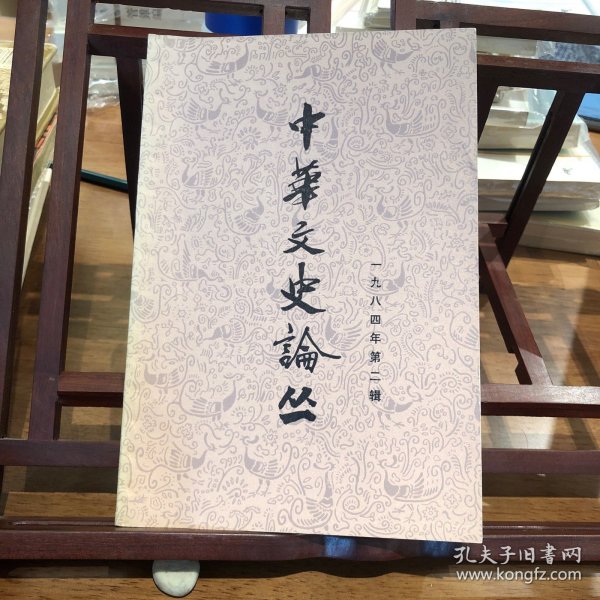 中華文史論丛
一九八四年第二辑
孔夫子旧書网
www.kongfz.com